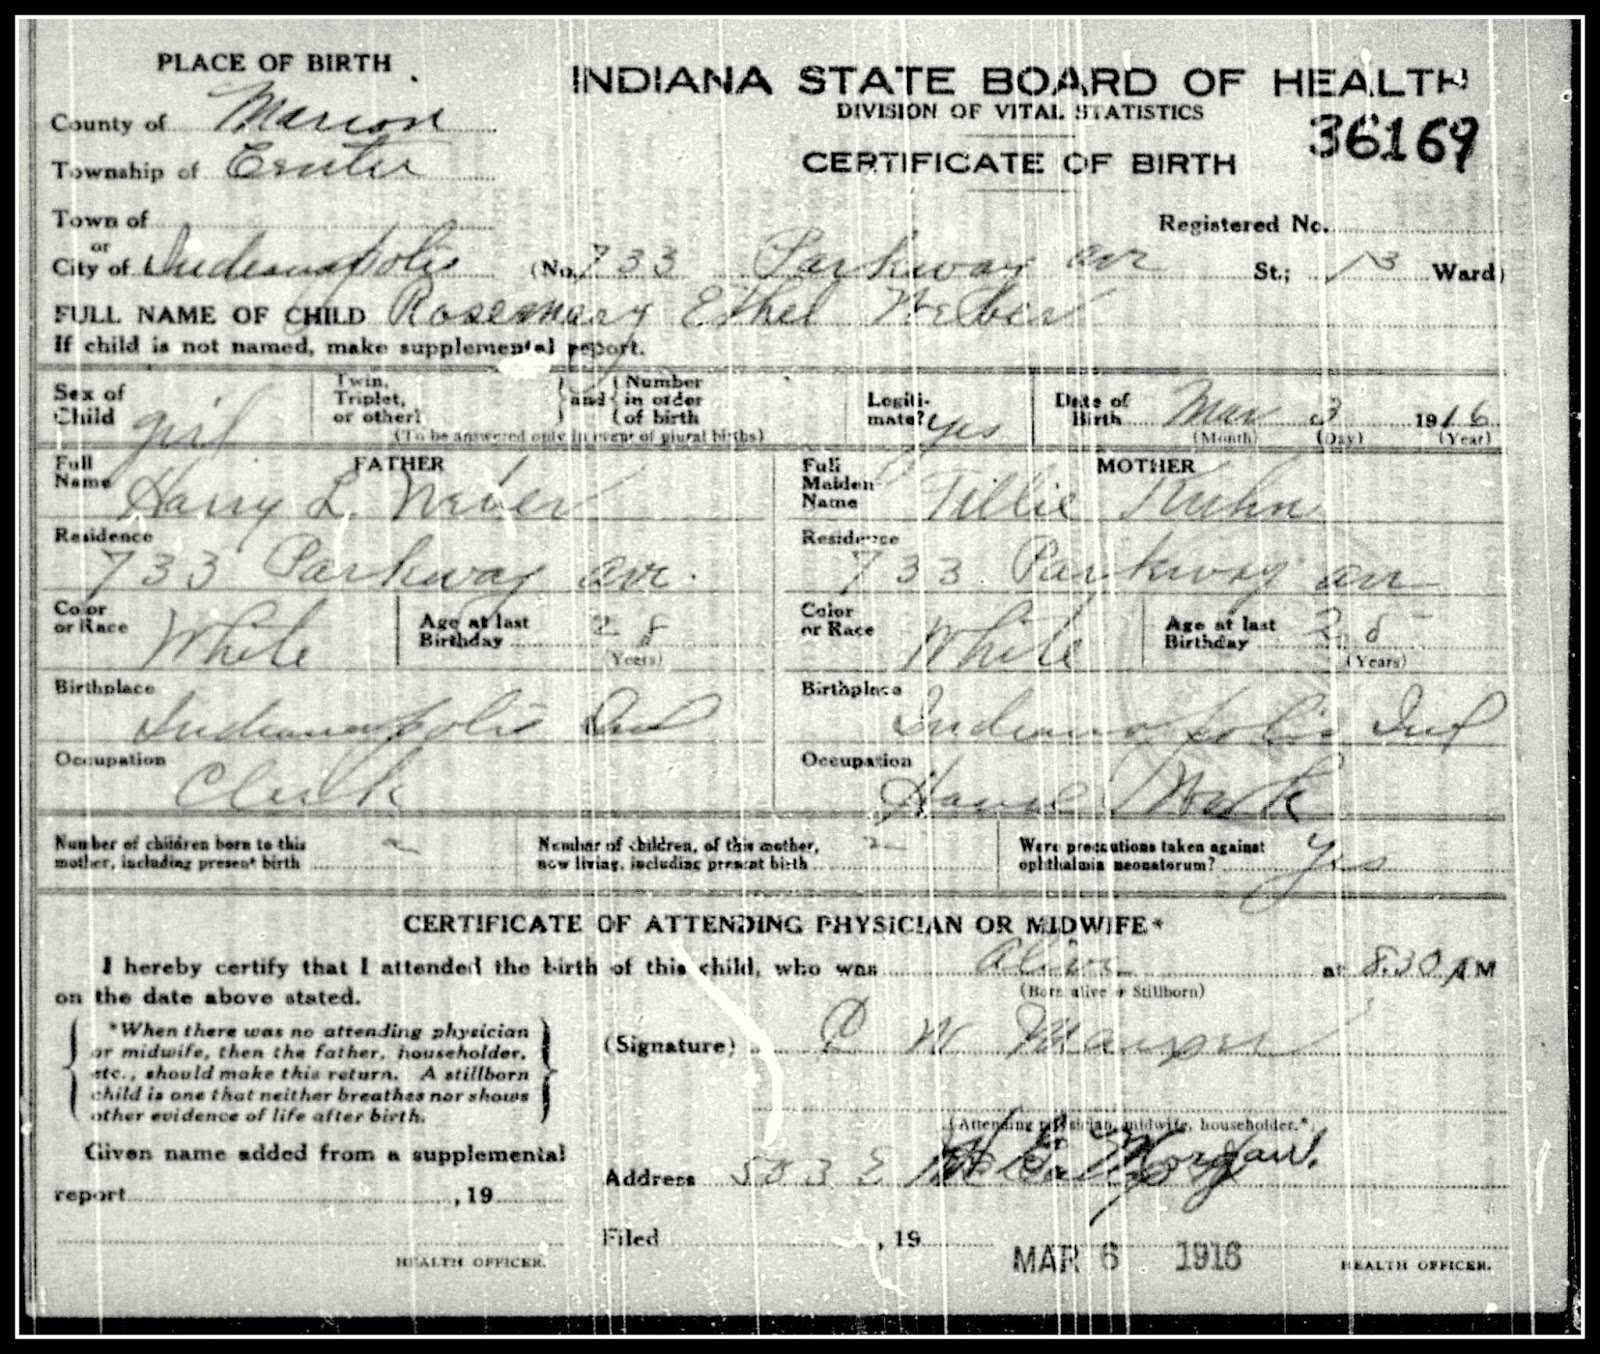 PLACE OF BIRTH
INDIANA STATE BOARD OF HEALTH
DIVISION OF VITAL STATISTICS
County of Marion
36169
CERTIFICATE OF BIRTH
Township of Center
Town of
Registered No.
or
City of Indianapolis (No. 733 Parkway ave St.; 13 Ward)
FULL NAME OF CHILD Rosemary Ethel Weber
If child is not named, make supplemental report.
Sex of Child girl
Twin, Triplet, or other? and Number in order of birth
(To be answered only in event of plural births)
Legiti-mate? yes
Date of Birth Mar 3 1916
(Month) (Day) (Year)
FATHER
Full Name Harry L. Weber
MOTHER
Full Maiden Name Tillie Kuhn
Residence 733 Parkway ave.
Residence 733 Parkway ave
Color or Race White
Age at last Birthday 28 (Years)
Color or Race White
Age at last Birthday 28 (Years)
Birthplace Indianapolis Ind
Birthplace Indianapolis Ind
Occupation Clerk
Occupation House Work
Number of children born to this mother, including present birth 2
Number of children, of this mother, now living, including present birth 2
Were precautions taken against ophthalmia neonatorum? Yes
CERTIFICATE OF ATTENDING PHYSICIAN OR MIDWIFE*
I hereby certify that I attended the birth of this child, who was alive at 8.30 A M
(Born alive or Stillborn)
on the date above stated.
*When there was no attending physician
or midwife, then the father, householder,
etc., should make this return. A stillborn
child is one that neither breathes nor shows
other evidence of life after birth.
(Signature) W
(Attending physician, midwife, householder.*)
Given name added from a supplemental
report , 19
Address 503 E
Morgan.
Filed , 19
MAR 6 1916
HEALTH OFFICER.
HEALTH OFFICER.